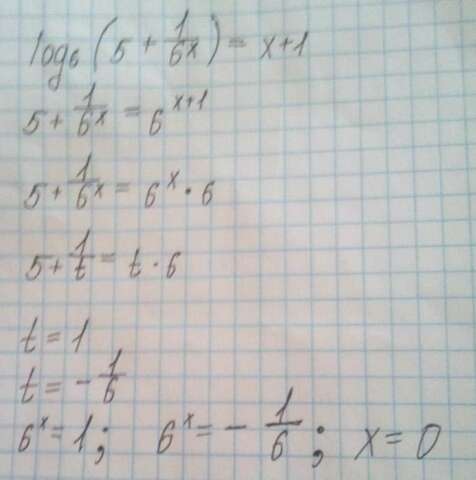 log₆(5 + 1/6ˣ) = x+1
5 + 1/6ˣ = 6ˣ⁺¹
5 + 1/6ˣ = 6ˣ · 6
5 + 1/t = t · 6
t = 1
t = - 1/6
6ˣ = 1; 6ˣ = - 1/6; x = 0